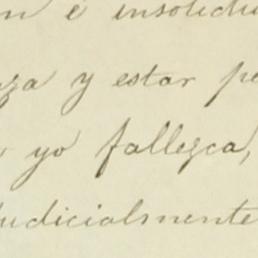 n é insolidu
za y estar pe
yo fallezca,
udicialmente